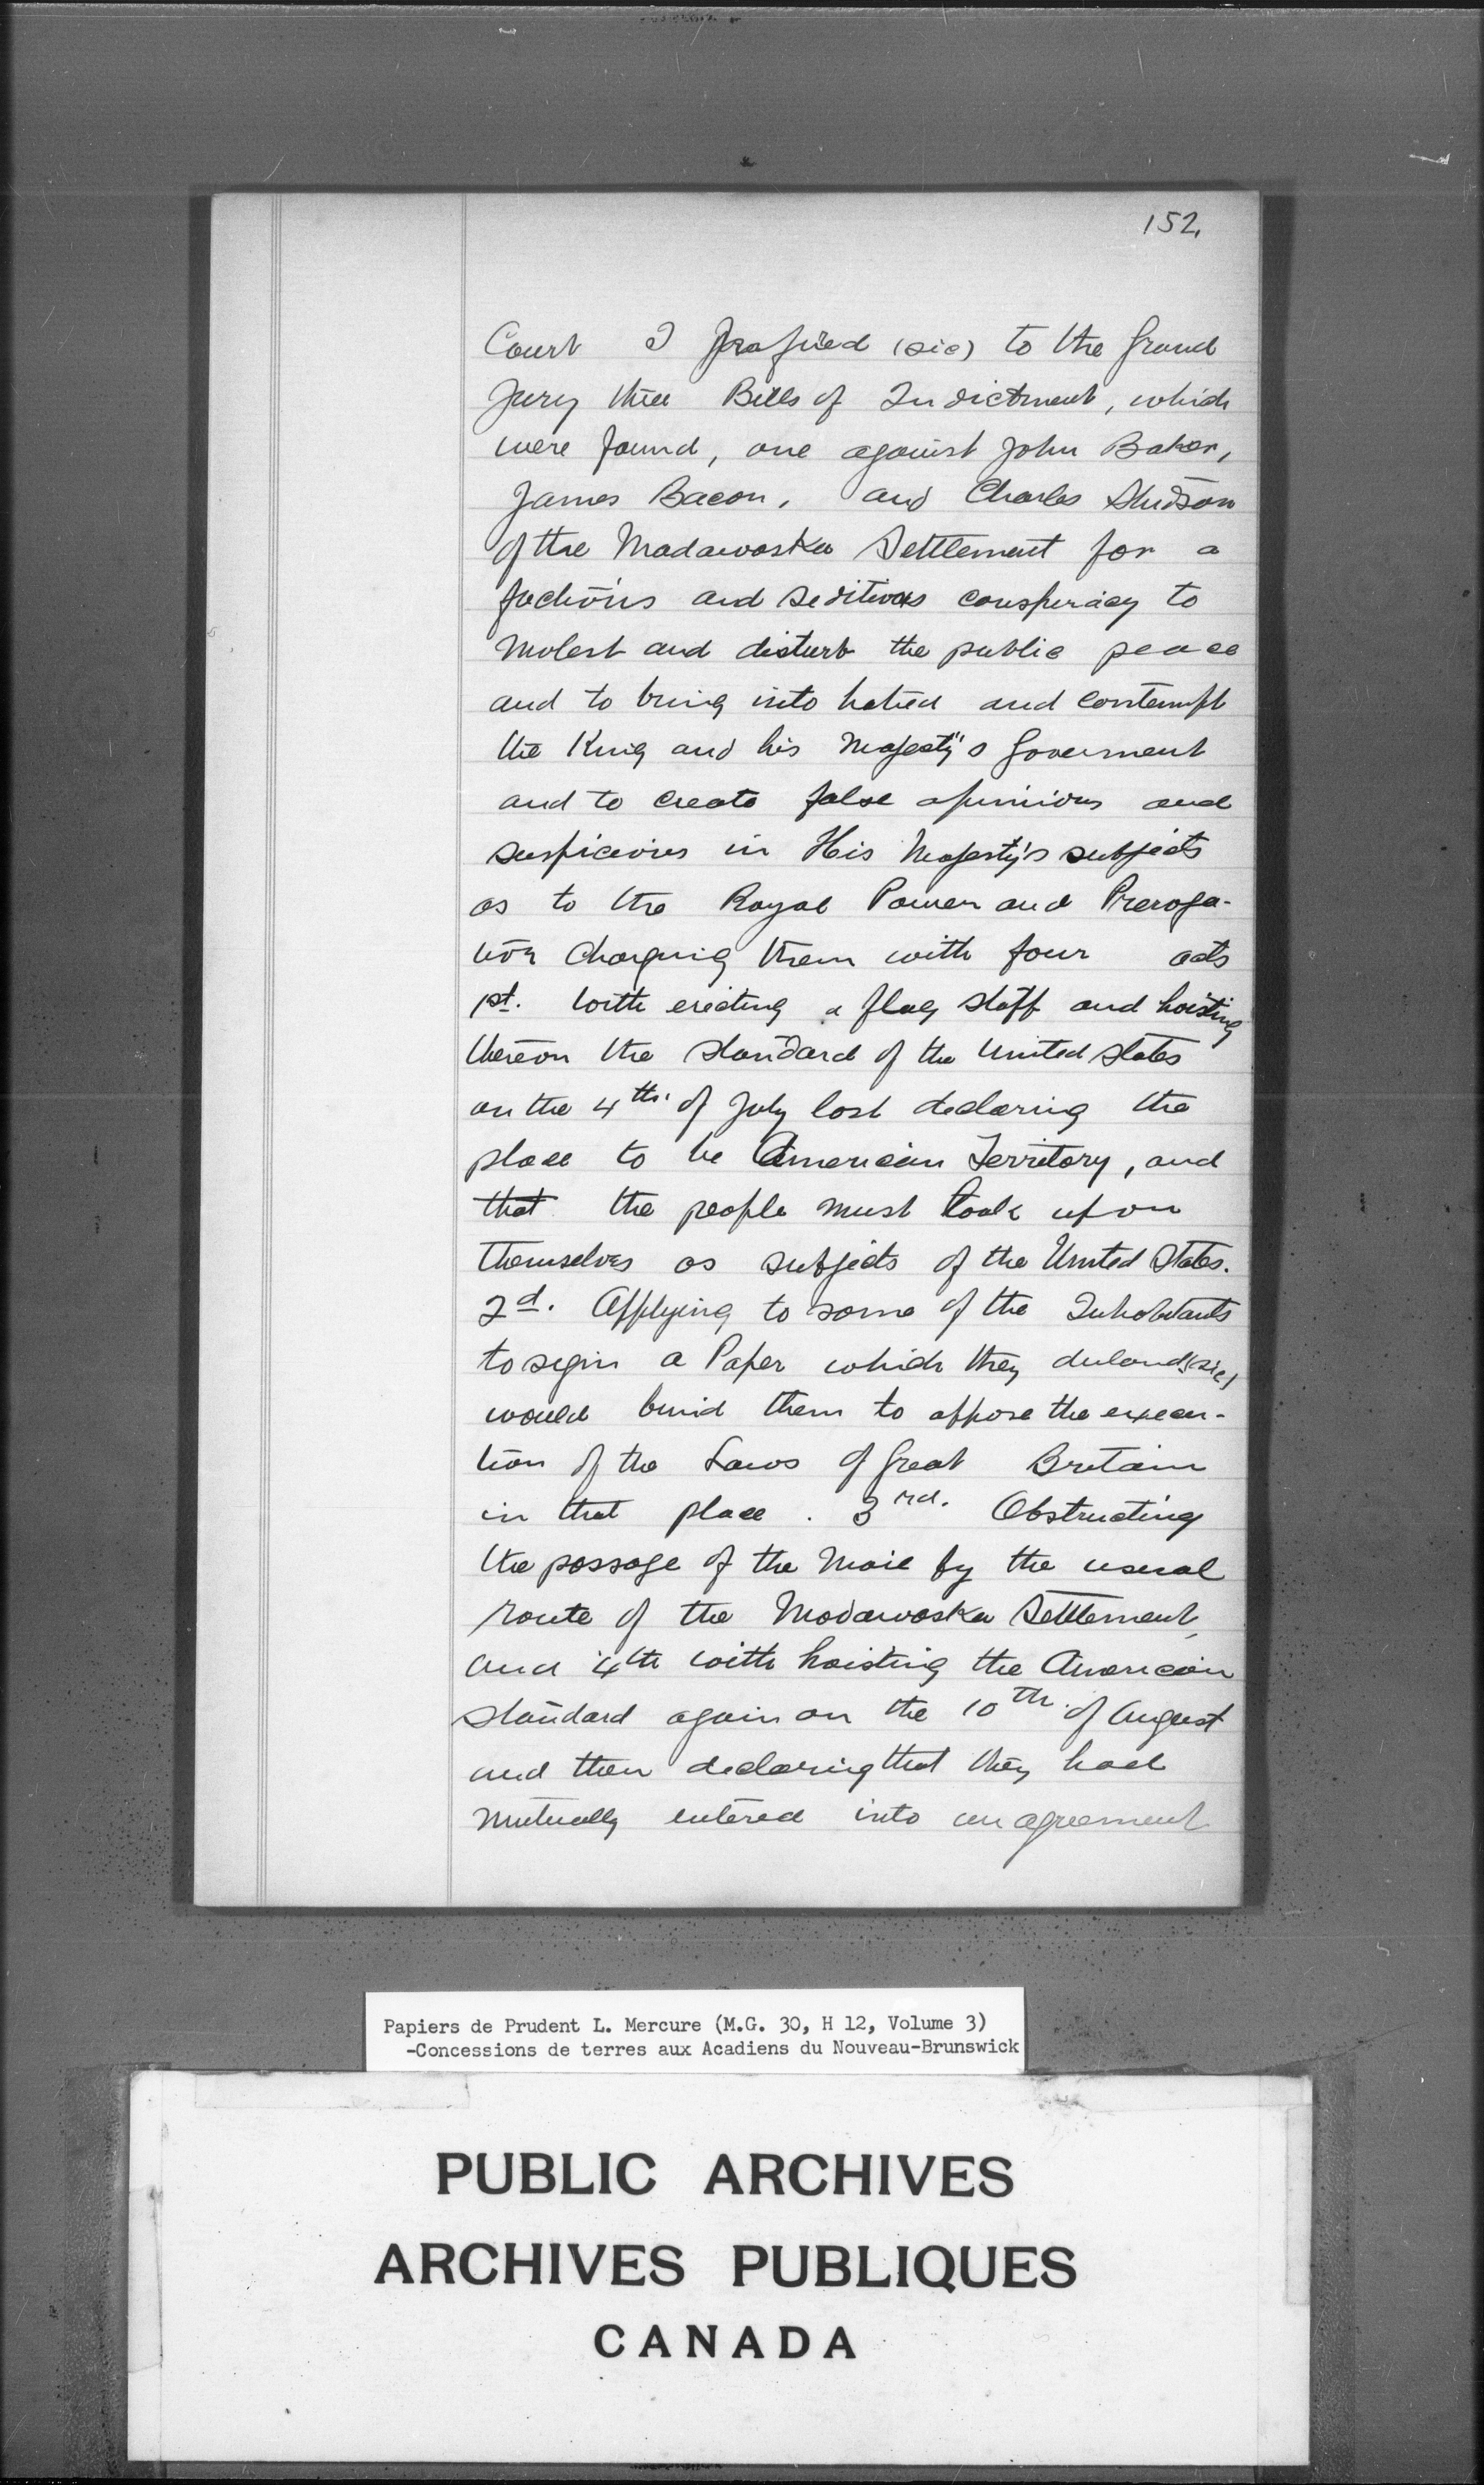 152.
Court I profired (sic) to the Grand
Jury three Bills of Indictment, which
were found, one against John Baker,
James Bacon, and Charles Studson
of the Madawaska Settlement for a
factious and seditious conspiracy to
molest and disturb the public peace
and to bring into hatred and contempt
the King and his Majesty's Goverment
and to create false opinions and
suspicions in His Majesty's subjects
as to the Royal Power and Preroga-
tion charging them with four acts
1st. with erecting a flag staff and hoisting
thereon the standard of the United States
on the 4th. of July last declaring the
place to be American Territory, and
that the people must look upon
themselves as subjects of the United States.
2d. Applying to some of the Inhabitants
to sign a Paper which they (sic)
would bind them to oppose the execu-
tion of the Laws of Great Britain
in that place. 3rd. Obstructing
the passage of the Mail by the usual
route of the Madawaska Settlement,
and 4th with hoisting the American
standard again on the 10th. of August
and then declaring that they had
mutually entered into an agreement
Papiers de Prudent L. Mercure (M.G. 30, H 12, Volume 3)
-Concessions de terres aux Acadiens du Nouveau-Brunswick
PUBLIC ARCHIVES
ARCHIVES PUBLIQUES
CANADA